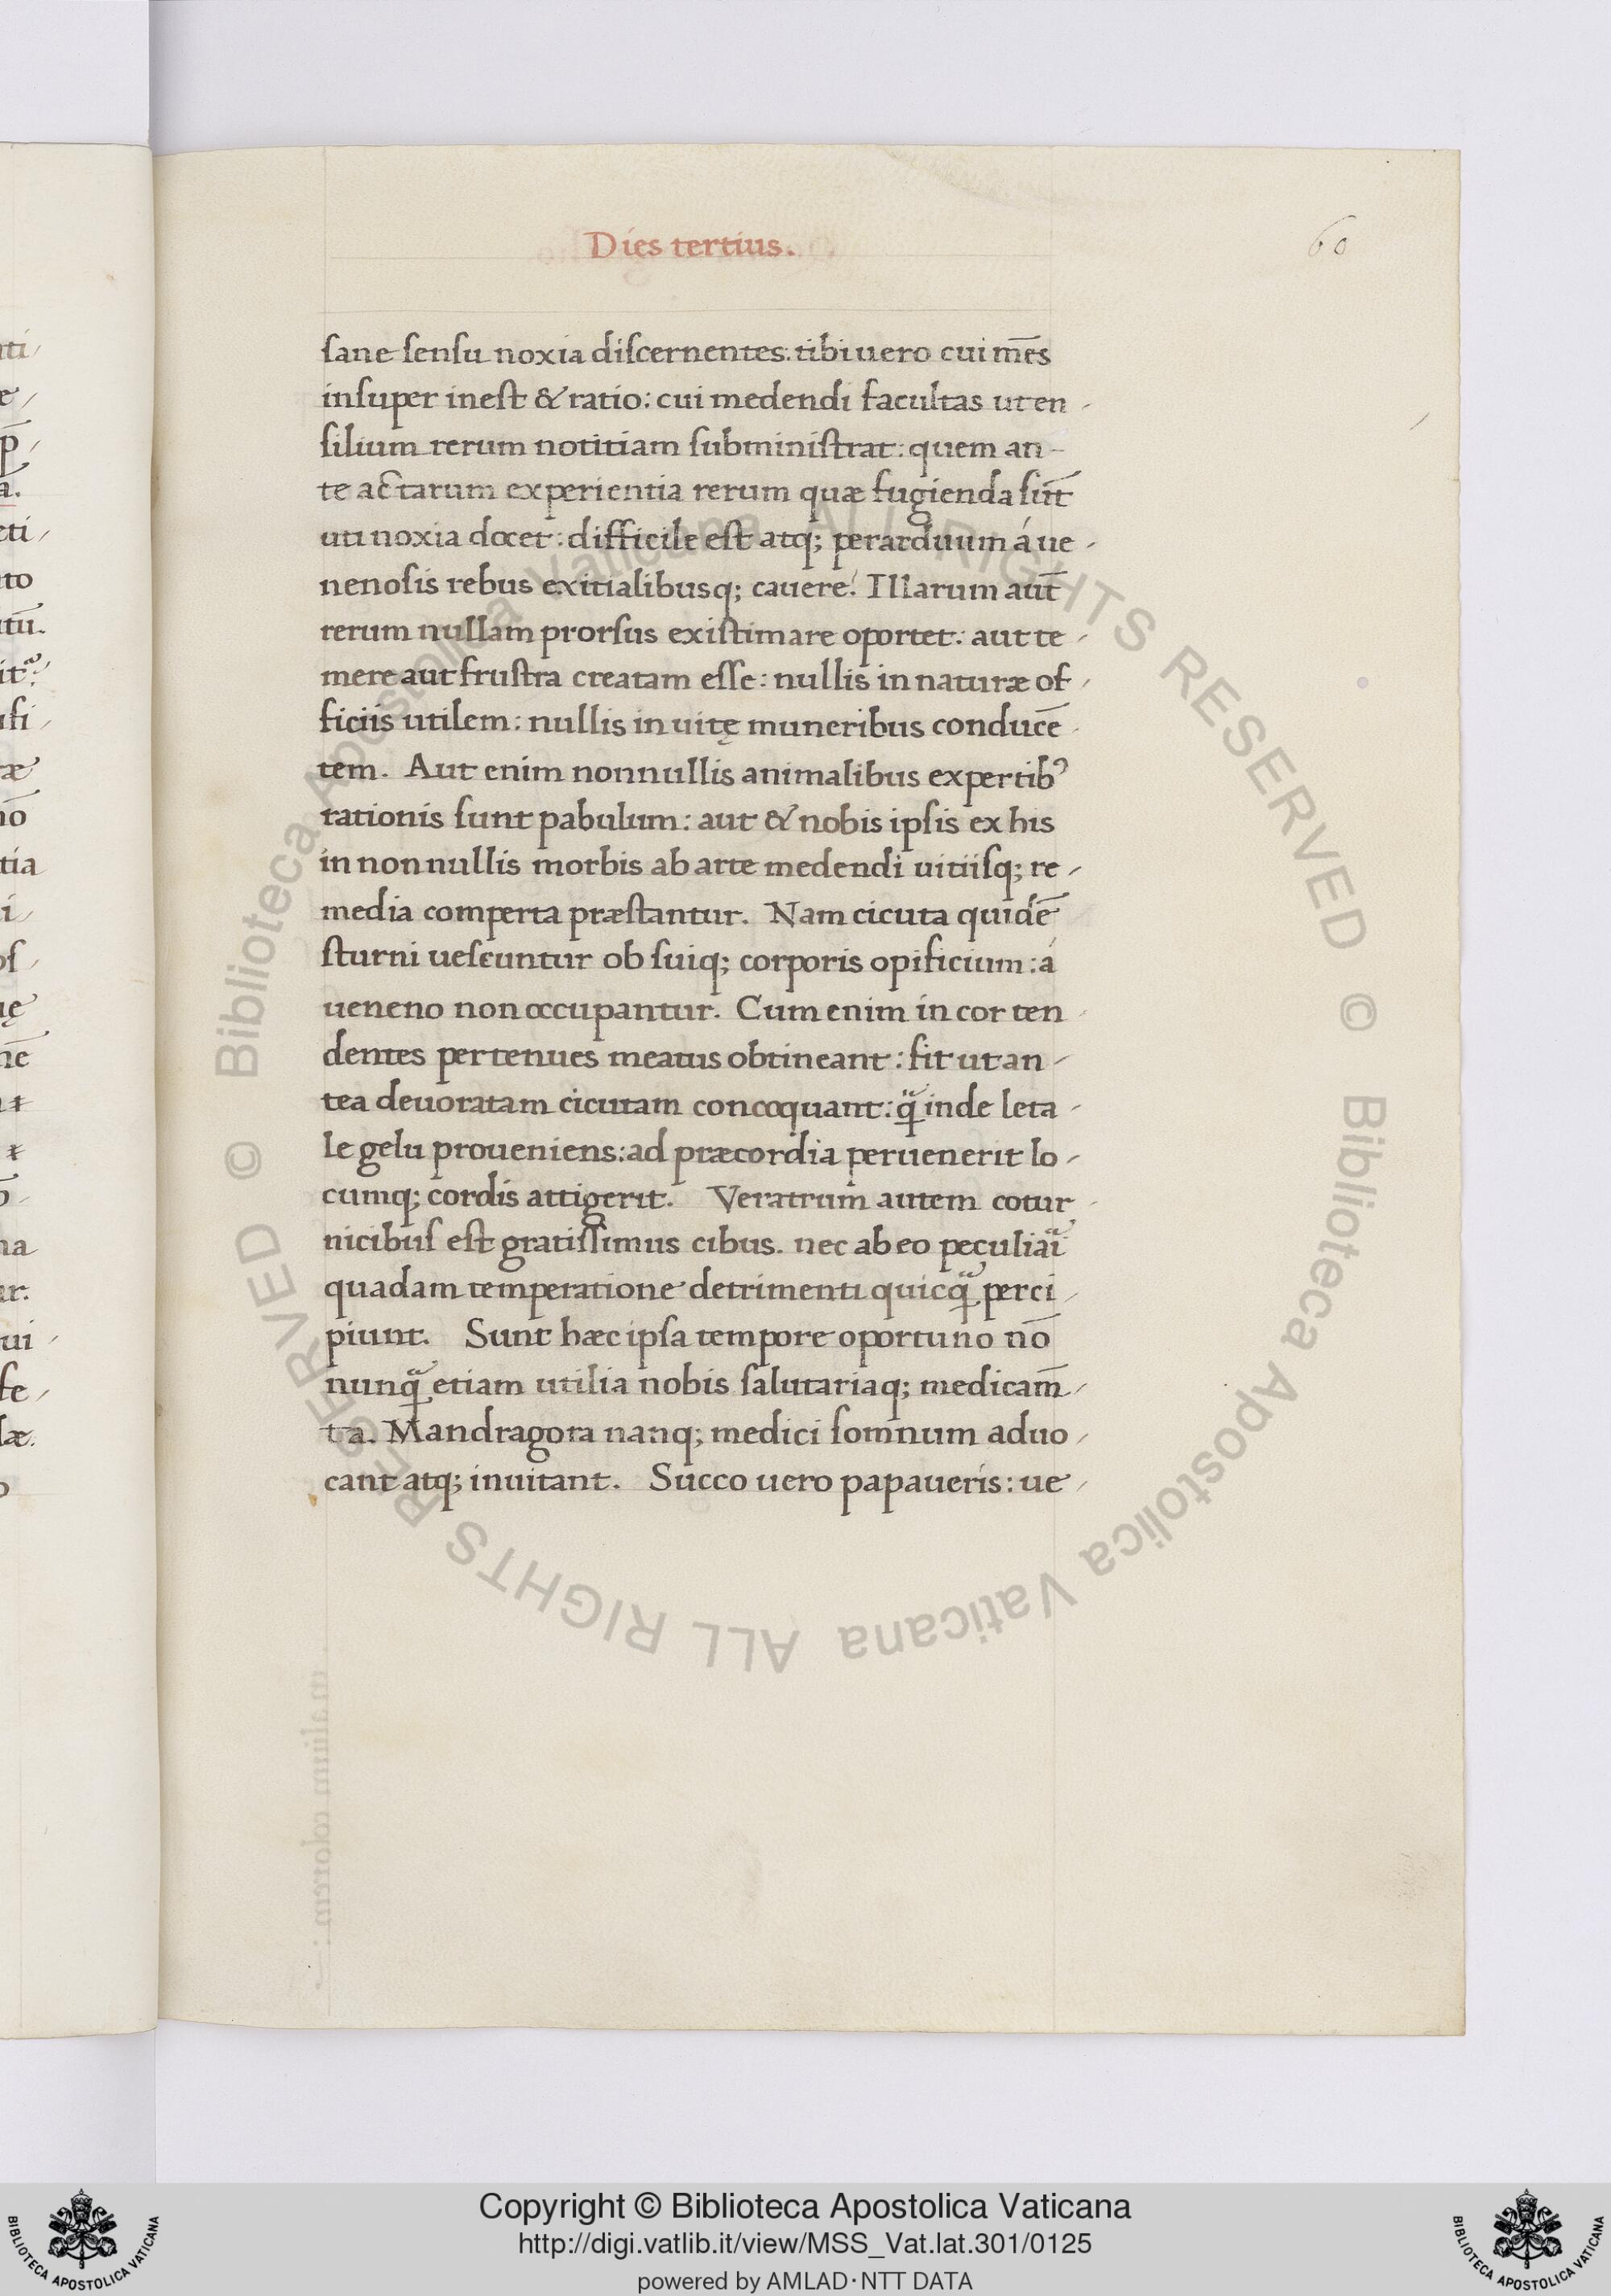 Dies tertius.
60
sane sensu noxia discernentes: tibi uero cui mēs
insuper inest & ratio: cui medendi facultas uten-
silium rerum notitiam subministrat: quem an-
te actarum experientia rerum quæ fugienda sūt
uti noxia docet: difficile est atq; perarduum á ue-
nenosis rebus exitialibusq; cauere? Illarum aūt
rerum nullam prorsus existimare oportet: aut te-
mere aut frustra creatam esse: nullis in naturæ of-
ficiis utilem: nullis in uitę muneribus conducē-
tem. Aut enim nonnullis animalibus expertibꝰ
rationis sunt pabulum: aut & nobis ipsis ex his
in nonnullis morbis ab arte medendi uitiisq; re-
media comperta præstantur. Nam cicuta quidē
sturni uescuntur ob suiq; corporis opificium: á
ueneno non occupantur. Cum enim in cor ten-
dentes pertenues meatus obtineant: fit ut an-
tea deuoratam cicutam concoquant: q̃ inde leta-
le gelu proueniens: ad præcordia peruenerit lo-
cumq; cordis attigerit. Veratrum autem cotur-
nicibus est gratissimus cibus. nec ab eo peculiaͣi
quadam temperatione detrimenti quicq̃ perci-
piunt. Sunt hæc ipsa tempore oportuno nō
nunq̃ etiam utilia nobis salutariaq; medicam̄-
ta. Mandragora nanq; medici somnum aduo-
cant atq; inuitant. Succo uero papaueris: ue-
© Biblioteca Apostolica Vaticana ALL RIGHTS RESERVED © Biblioteca Apostolica Vaticana ALL RIGHTS RESERVED
Copyright © Biblioteca Apostolica Vaticana
http://digi.vatlib.it/view/MSS_Vat.lat.301/0125
powered by AMLAD·NTT DATA
BIBLIOTECA APOSTOLICA VATICANA
BIBLIOTECA APOSTOLICA VATICANA